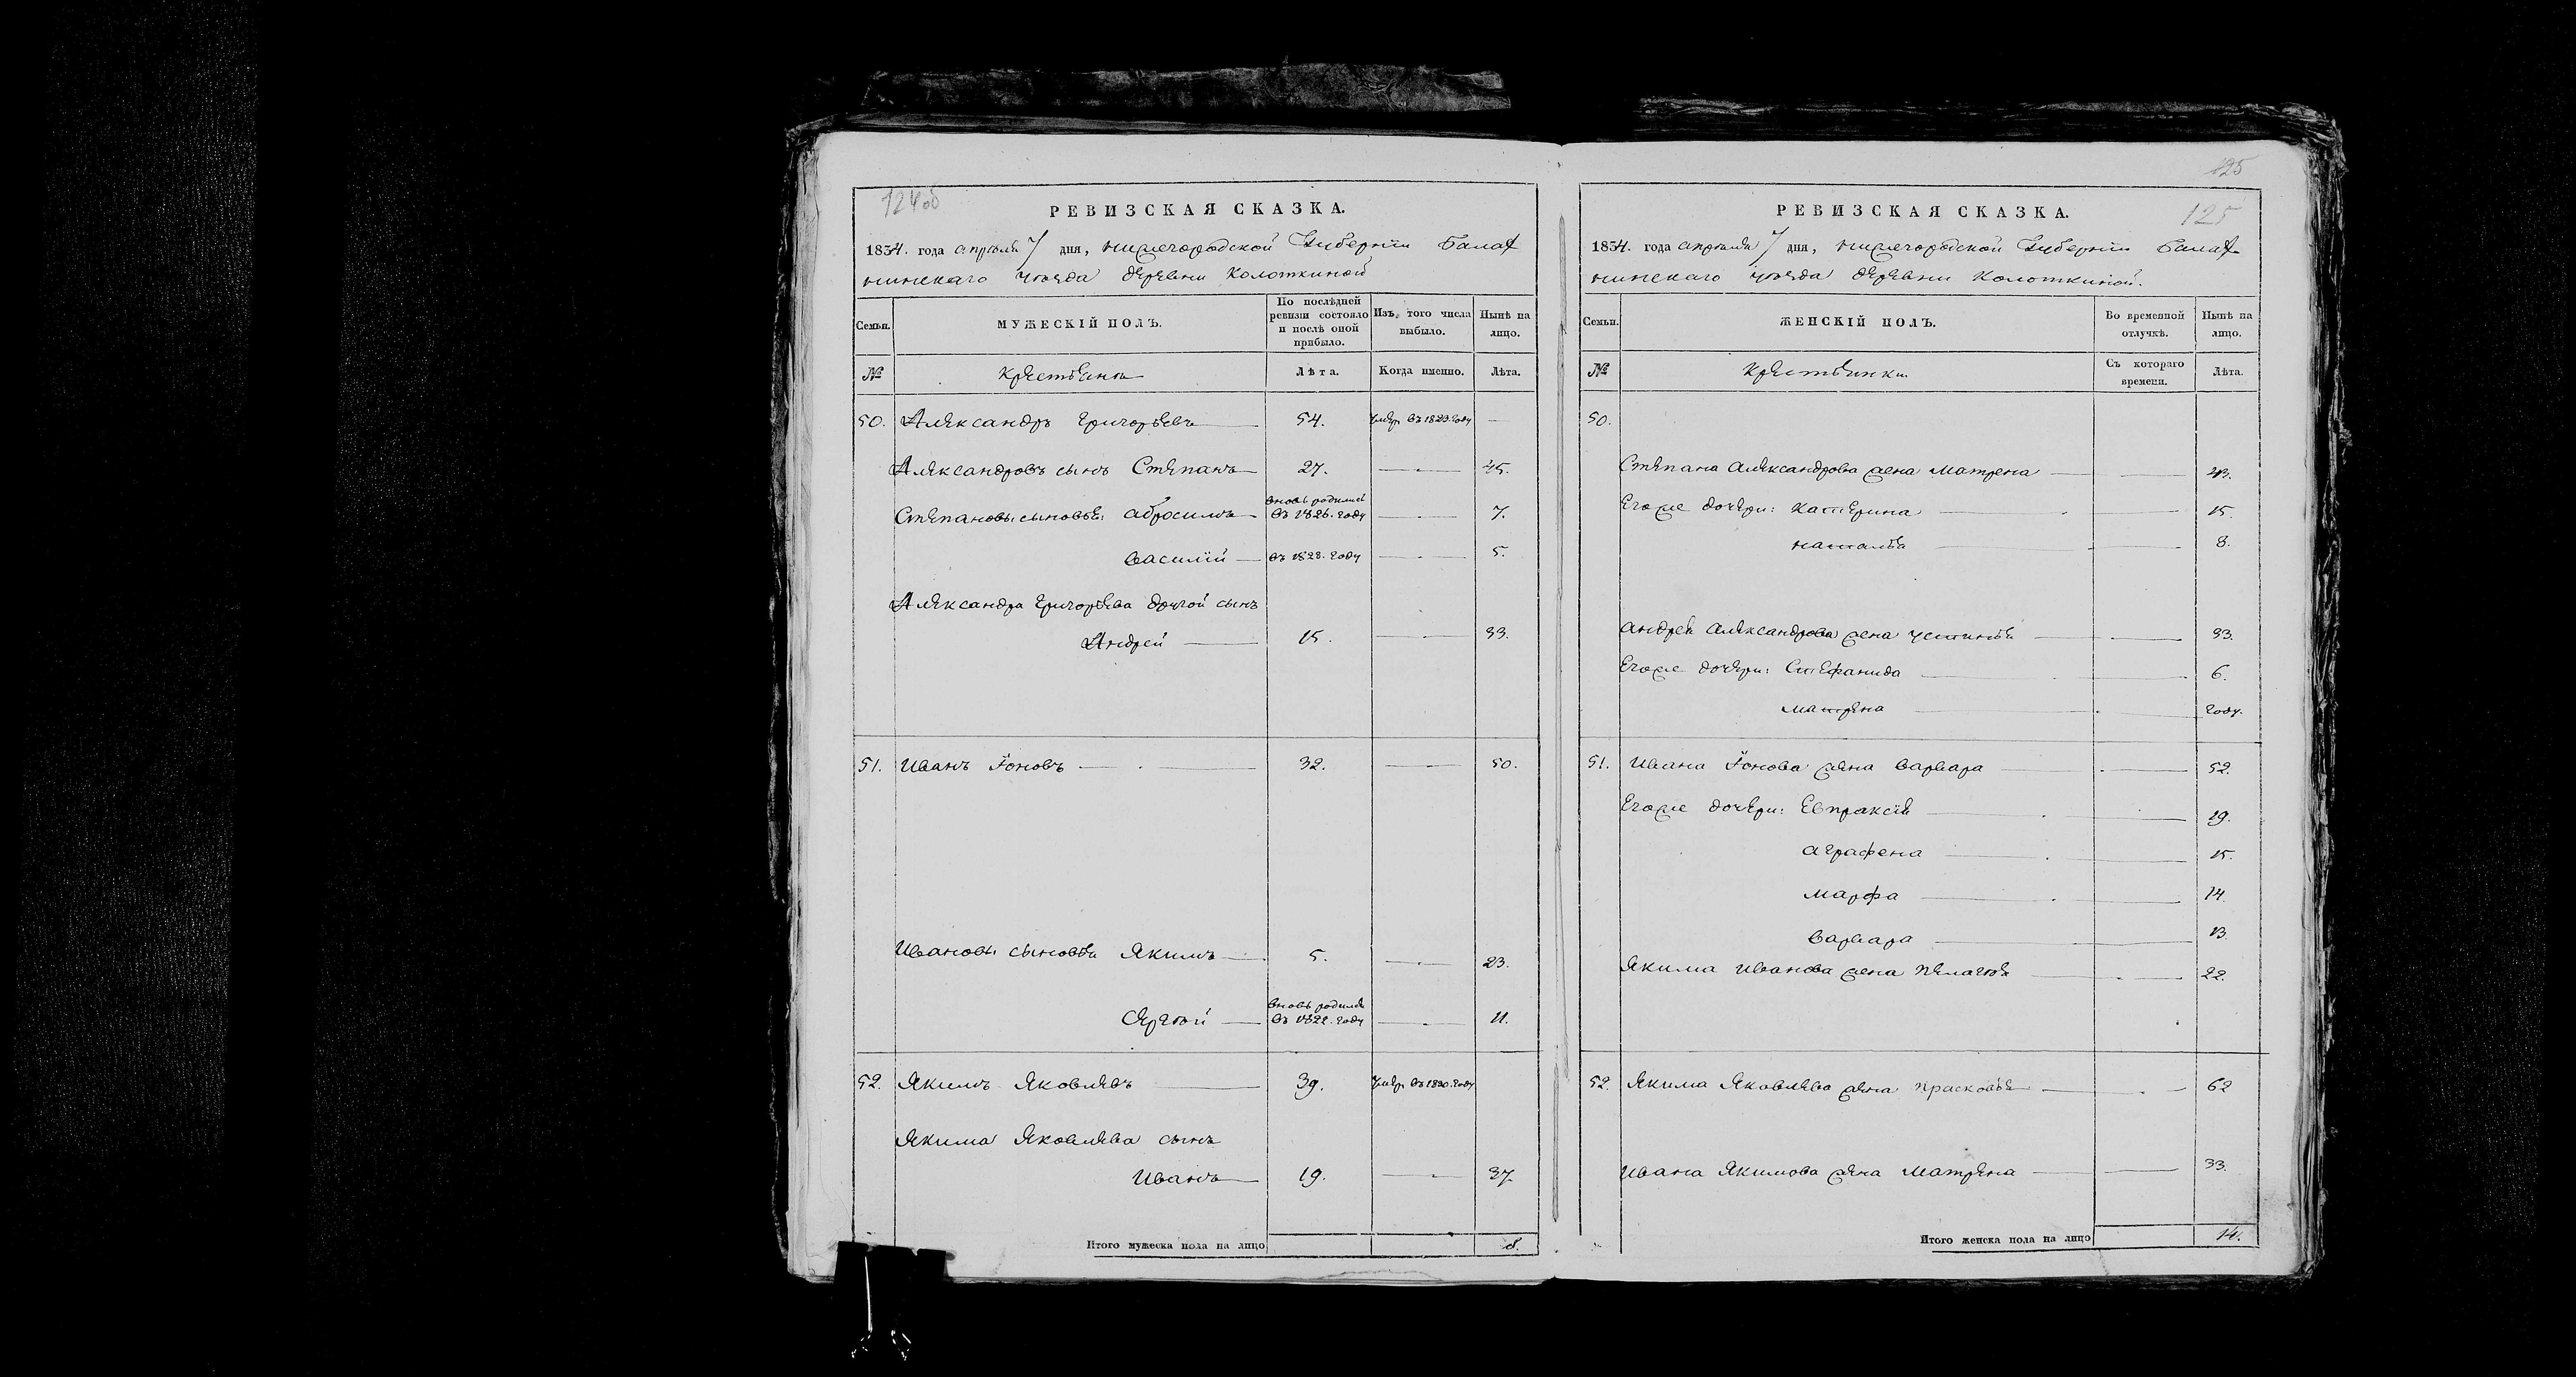 124об
РЕВИЗСКАЯ СКАЗКА.
1834. года апреля 7 дня, нижегородской Губернiи Балах-
нинскаго уѣзда деревни Колоткиной
Семьи.
МУЖЕСКIЙ ПОЛЪ.
По послѣдней ревизiи состояло и послѣ оной прибыло.
Изъ того числа выбыло.
Нынѣ на лицо.
№
Крестьянъ
Лѣта.
Когда именно.
Лѣта.
50. Александръ Григорьевъ 54. умер. въ 1823. году —
Александровъ сынъ Степанъ 27. — 45.
Степановы сыновья: Абросимъ вновь родился въ 1826. году — 7.
Василiй въ 1828. году — 5.
Александра Григорьева другой сынъ
Андрей 15. — 33.
51. Иванъ Iоновъ 32. — 50.
Ивановы сыновья Якимъ 5. — 23.
Сергѣй вновь родился въ 1822. году — 11.
52. Якимъ Яковлевъ 39. умер. въ 1830. году
Якима Яковлева сынъ
Иванъ 19. — 37
Итого мужеска пола на лицо 8.
125
125
РЕВИЗСКАЯ СКАЗКА.
1834. года апреля 7 дня, нижегородской Губернiи Балах-
нинскаго уѣзда деревни Колоткиной.
Семьи.
ЖЕНСКIЙ ПОЛЪ.
Во временной отлучкѣ.
Нынѣ на лицо.
№
Крестьянки
Съ котораго времени.
Лѣта.
50.
Степана Александрова жена Матрена — 43.
Егоже дочери: Катерина — 15.
Наталья — 8.
Андрея Александрова жена Устинья — 33.
Егоже дочери: Стефанида — 6.
Матрена — году.
51. Ивана Iонова жена Варвара — 52.
Егоже дочери: Евпраксiя — 19.
Аграфена — 15.
Марфа — 14.
Варвара — 13.
Якима Иванова жена Пелагѣя — 22.
52. Якима Яковлева жена Прасковья — 62
Ивана Якимова жена Матрена — 33.
Итого женска пола на лицо 14.